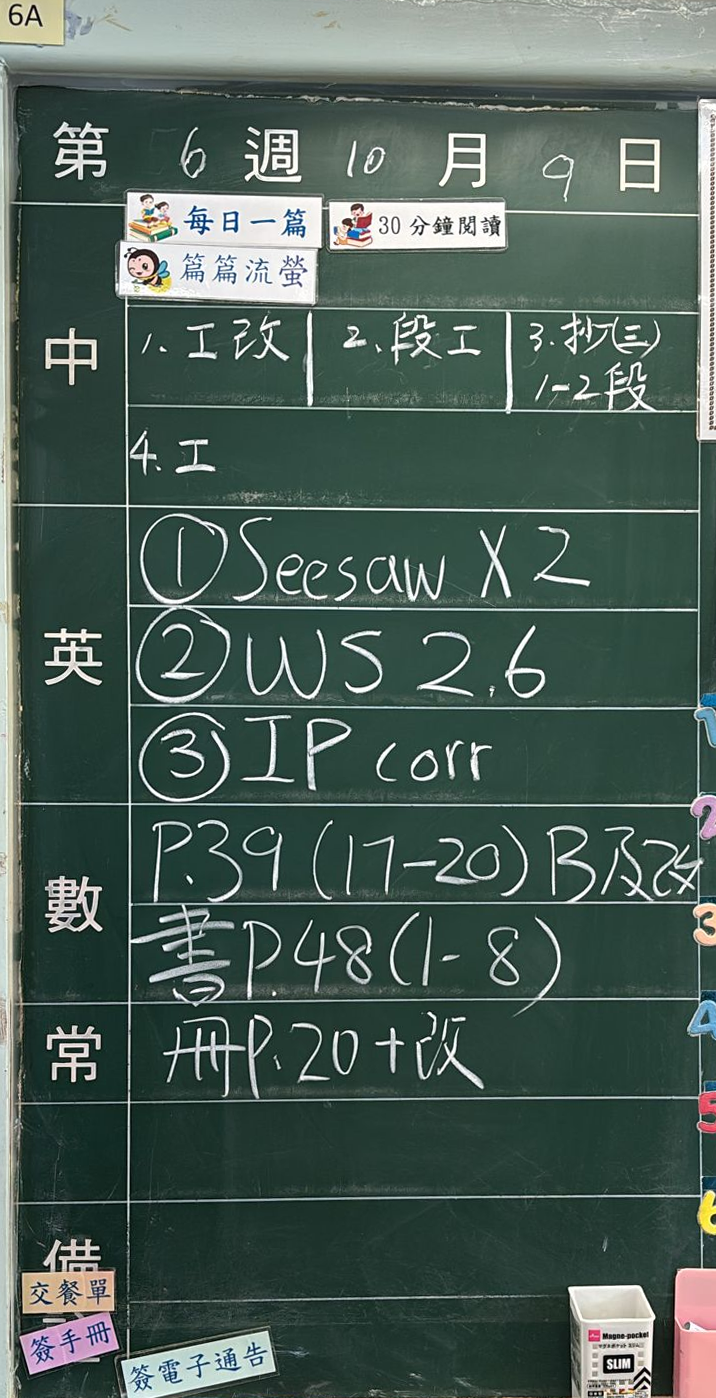 6A
第 6 週 10 月 9 日
每日一篇
30分鐘閱讀
篇篇流螢
中
1. 工改
2. 段工
3. 抄(三)
1-2段
4. 工
英
① Seesaw X2
② WS 2.6
③ IP corr
數
P.39 (17-20) B及改
書P.48 (1-8)
常
冊P.20+改
備
交餐單
簽手冊
簽電子通告
Magne-pocket
SLIM
1
2
3
4
5
6